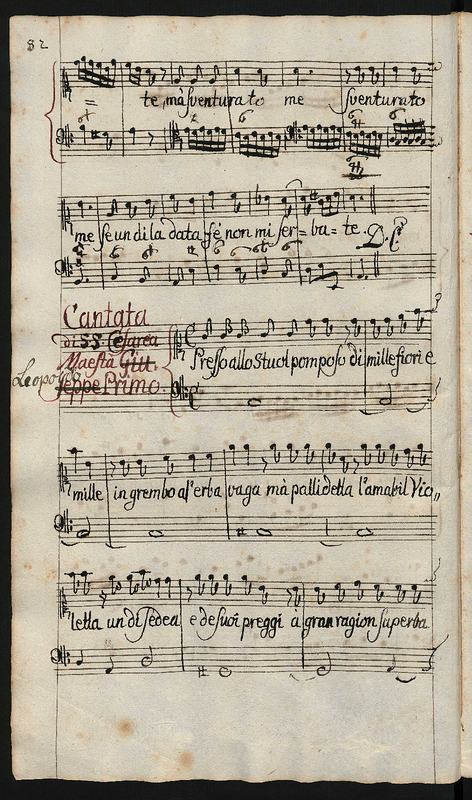 82
te, mà sventurato me sventurato
me se un di la data fé non mi ser=ba=te. D. C.
Cantata
di S.S. Cesarea
Maestà Giu
seppe Primo
Leopoldo
Presso allo Stuol pomposo di mille fiori e
mille in grembo al'erba vaga mà pallidetta l'amabil Vio„
letta un di sedea e de suoi preggi à gran ragion superba